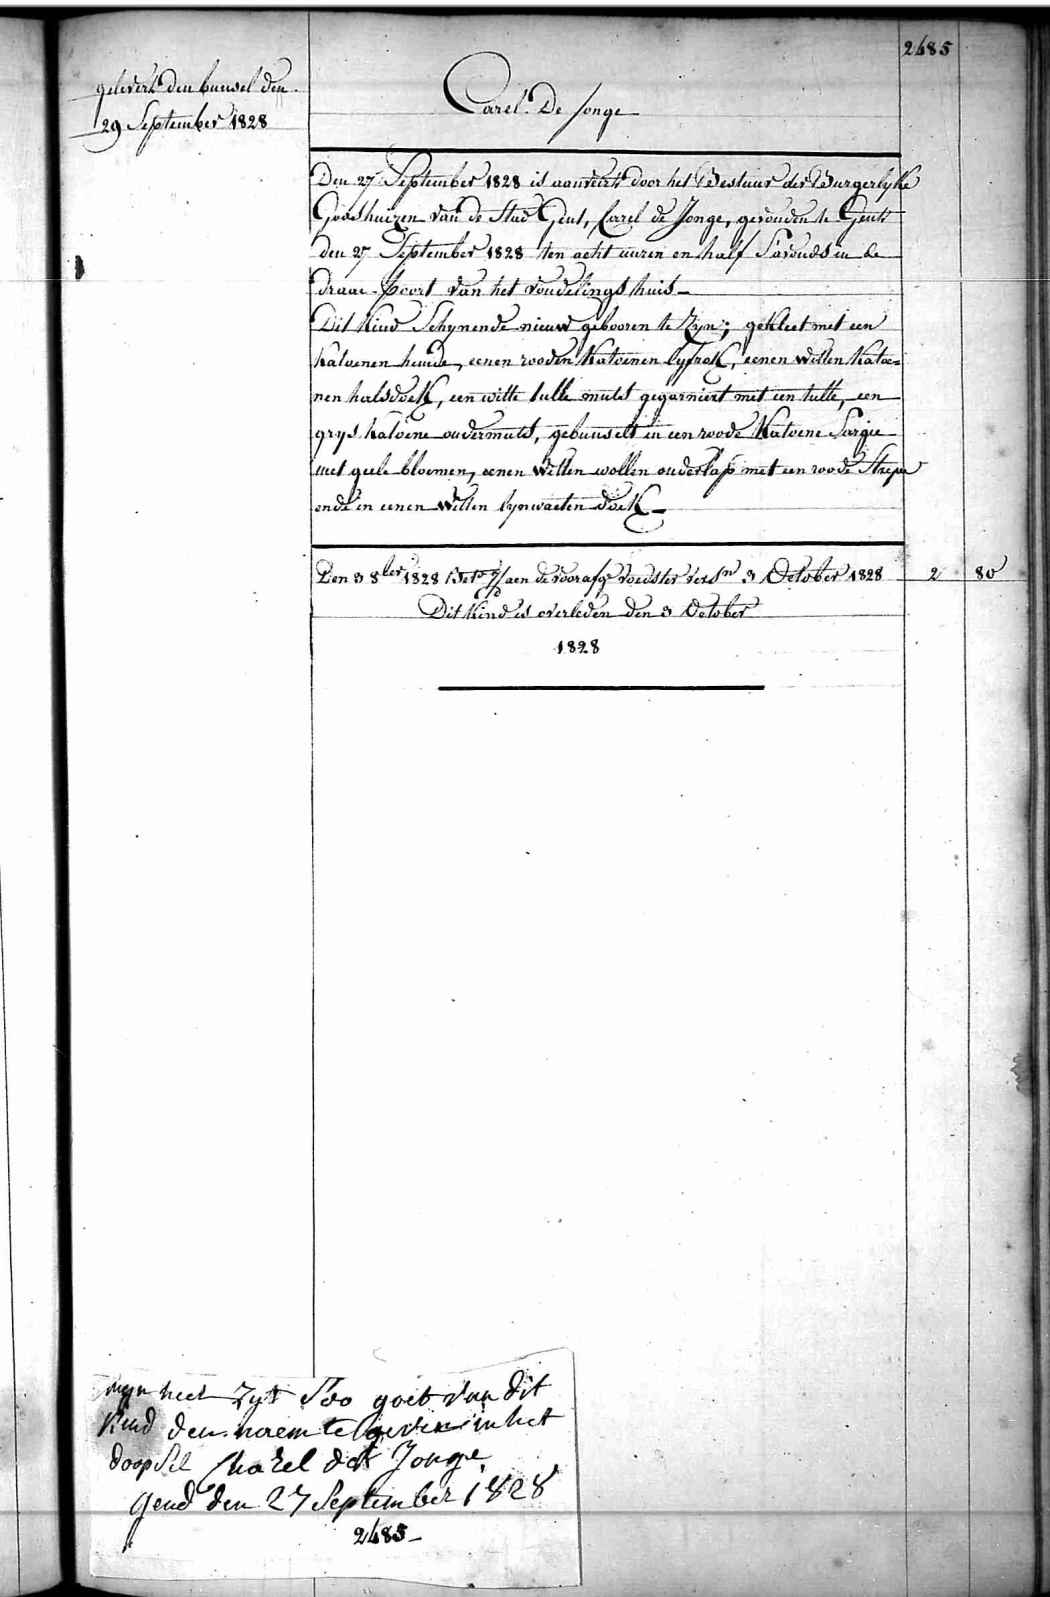 2485
gelevert den bunsel den
29 September 1828
Carel De Jonge
Den 27 September 1828 is aanveert door het Bestuur der Burgerlyke
Godshuizen van de Stad Gent, Carel de Jonge, gevonden te Gent
den 27 September 1828 ten acht uuren en half S'avonds in de
draae-poort van het vondelingshuis
Dit Kind Schynende nieuw gebooren te Zyn; gekleet met een
Katoenen hemde, eenen rooden Katoenen lyfrok, eenen witten Katoe=
nen halsdoek, een witte tulle muts gegarniert met een tulle, een
grys Katoene ondermuts, gebunselt in een roode Katoene Sargie
met geele bloemen, eenen witten wollen onderlap met een roode Strepe
ende in eenen Witten lynwaeten doek
Den 3 8ber 1828 aen de voedster 3 October 1828 2 80
Dit Kind is overleden den 3 October
1828
myn heer Zyt Soo goet van dit
Kind den naem te geven in het
doopsel Charel de Jonge
Gend den 27 September 1828
2485